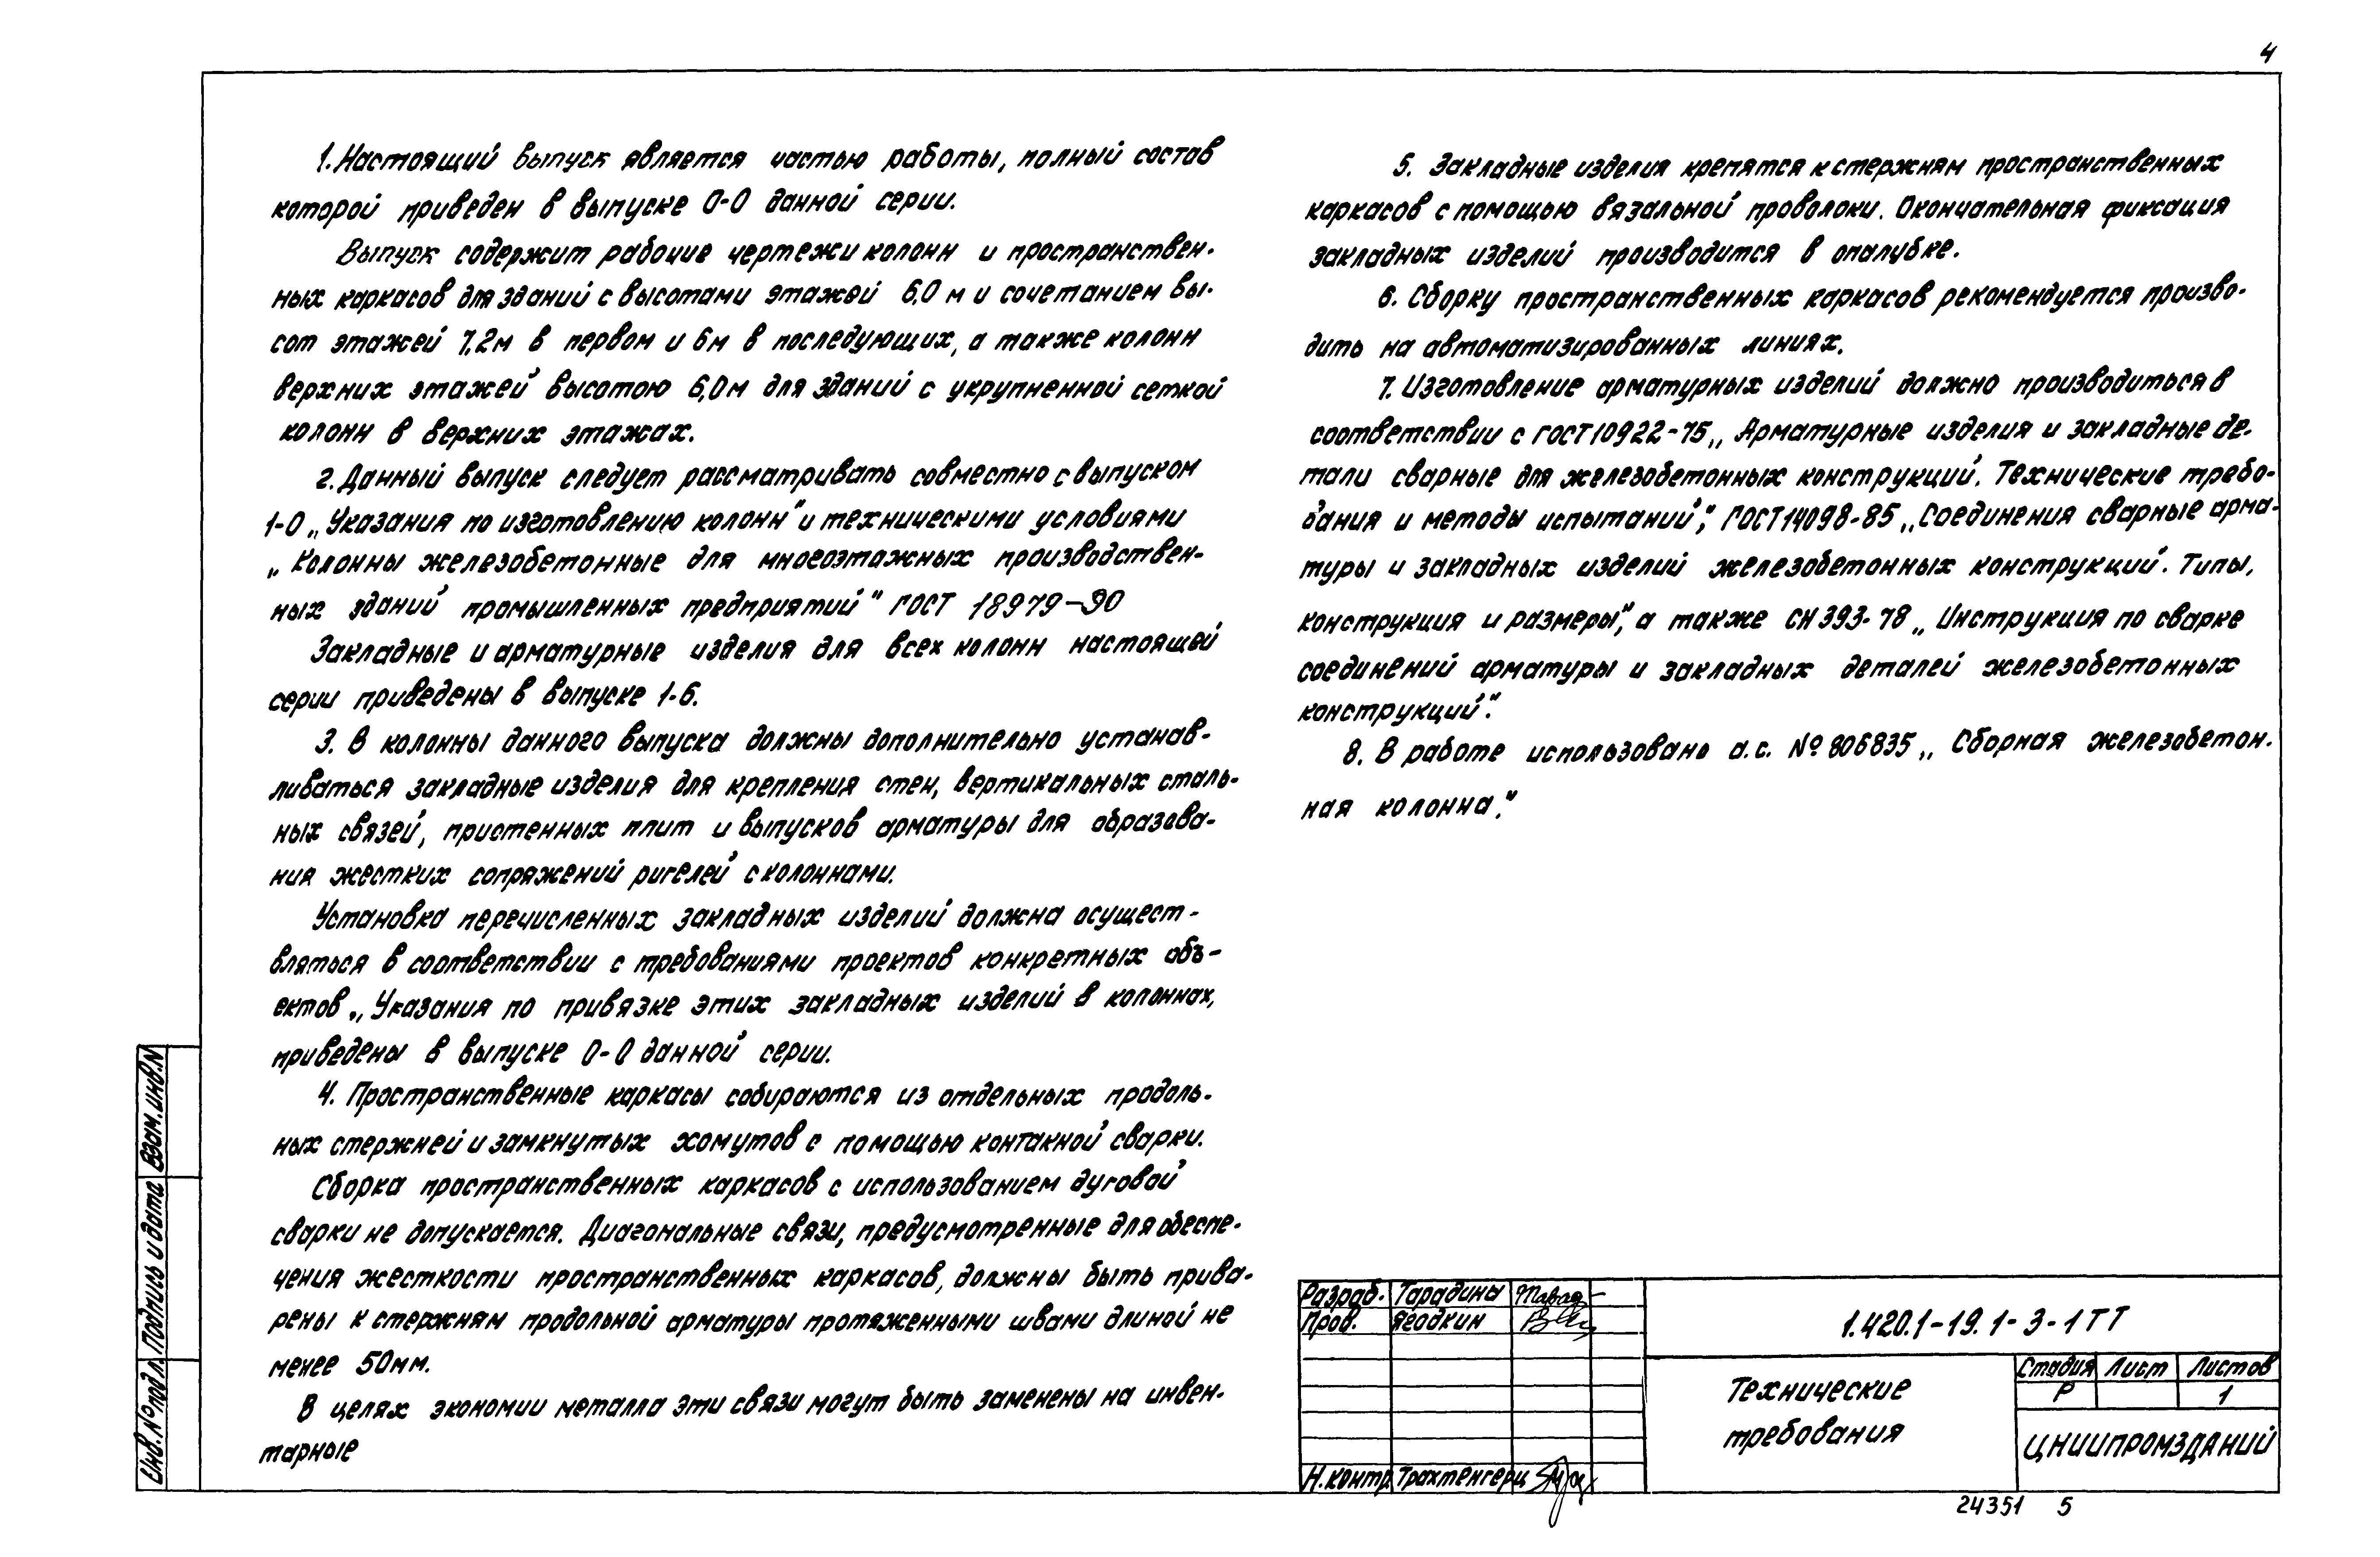 4
1. Настоящий выпуск является частью работы, полный состав
которой приведен в выпуске 0-0 данной серии.
Выпуск содержит рабочие чертежи колонн и пространствен-
ных каркасов для зданий с высотами этажей 6,0 м и сочетанием вы-
сот этажей 7,2м в первом и 6м в последующих, а также колонн
верхних этажей высотою 6,0м для зданий с укрупненной сеткой
колонн в верхних этажах.
2. Данный выпуск следует рассматривать совместно с выпуском
1-0 „Указания по изготовлению колонн" и техническими условиями
„Колонны железобетонные для многоэтажных производствен-
ных зданий промышленных предприятий" ГОСТ 18979-90
Закладные и арматурные изделия для всех колонн настоящей
серии приведены в выпуске 1-6.
3. В колонны данного выпуска должны дополнительно устанав-
ливаться закладные изделия для крепления стен, вертикальных сталь-
ных связей, пристенных плит и выпусков арматуры для образова-
ния жестких сопряжений ригелей с колоннами.
Установка перечисленных закладных изделий должна осущест-
вляться в соответствии с требованиями проектов конкретных объ-
ектов „Указания по привязке этих закладных изделий в колоннах,
приведены в выпуске 0-0 данной серии.
4. Пространственные каркасы собираются из отдельных продоль-
ных стержней и замкнутых хомутов с помощью контакной сварки.
Сборка пространственных каркасов с использованием дуговой
сварки не допускается. Диагональные связи, предусмотренные для обеспе-
чения жесткости пространственных каркасов, должны быть прива-
рены к стержням продольной арматуры протяженными швами длиной не
менее 50мм.
В целях экономии металла эти связи могут быть заменены на инвен-
тарные
5. Закладные изделия крепятся к стержням пространственных
каркасов с помощью вязальной проволоки. Окончательная фиксация
закладных изделий производится в опалубке.
6. Сборку пространственных каркасов рекомендуется произво-
дить на автоматизированных линиях.
7. Изготовление арматурных изделий должно производиться в
соответствии с ГОСТ10922-75 „Арматурные изделия и закладные де-
тали сварные для железобетонных конструкций. Технические требо-
вания и методы испытаний", ГОСТ14098-85 „Соединения сварные арма-
туры и закладных изделий железобетонных конструкций. Типы,
конструкция и размеры", а также СН 393-78 „Инструкция по сварке
соединений арматуры и закладных деталей железобетонных
конструкций".
8. В работе использовано а.с. № 806835 „Сборная железобетон-
ная колонна."
Взам. инв. N
Подпись и дата
Инв. № подл.
Разраб. Тарадина
Пров. Ягодкин
Н.контр. Трахтенгерц
1.420.1-19.1-3-1ТТ
Технические
требования
Стадия Лист Листов
Р 1
ЦНИИПРОМЗДАНИЙ
24351 5